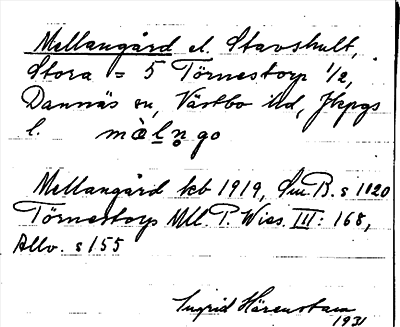 Mellangård el. Stavshult,
Stora = 5 Törnestorp 1/2,
Dannäs sn, Västbo hd, Jkpgs
l. màlngo
Mellangård kb 1919, Sm B. s 1020
Törnestorp Mll. P. Wies. III: 168,
Allv. s 155
Ingrid Härenstam
1931